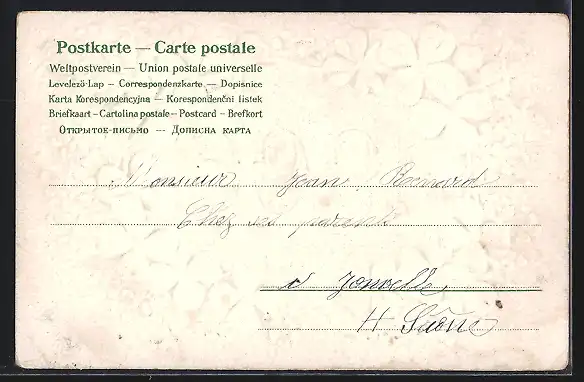 Postkarte — Carte postale
Weltpostverein — Union postale universelle
Levelezö-Lap – Correspondenzkarte – Dopisnice
Karta Korespondencyjna – Korespondenční lístek
Briefkaart – Cartolina postale – Postcard – Brefkort
Открытое-письмо — Дописна карта
Monsieur Jean Renard
Chez ses parents
à Jonvelle
H Saône